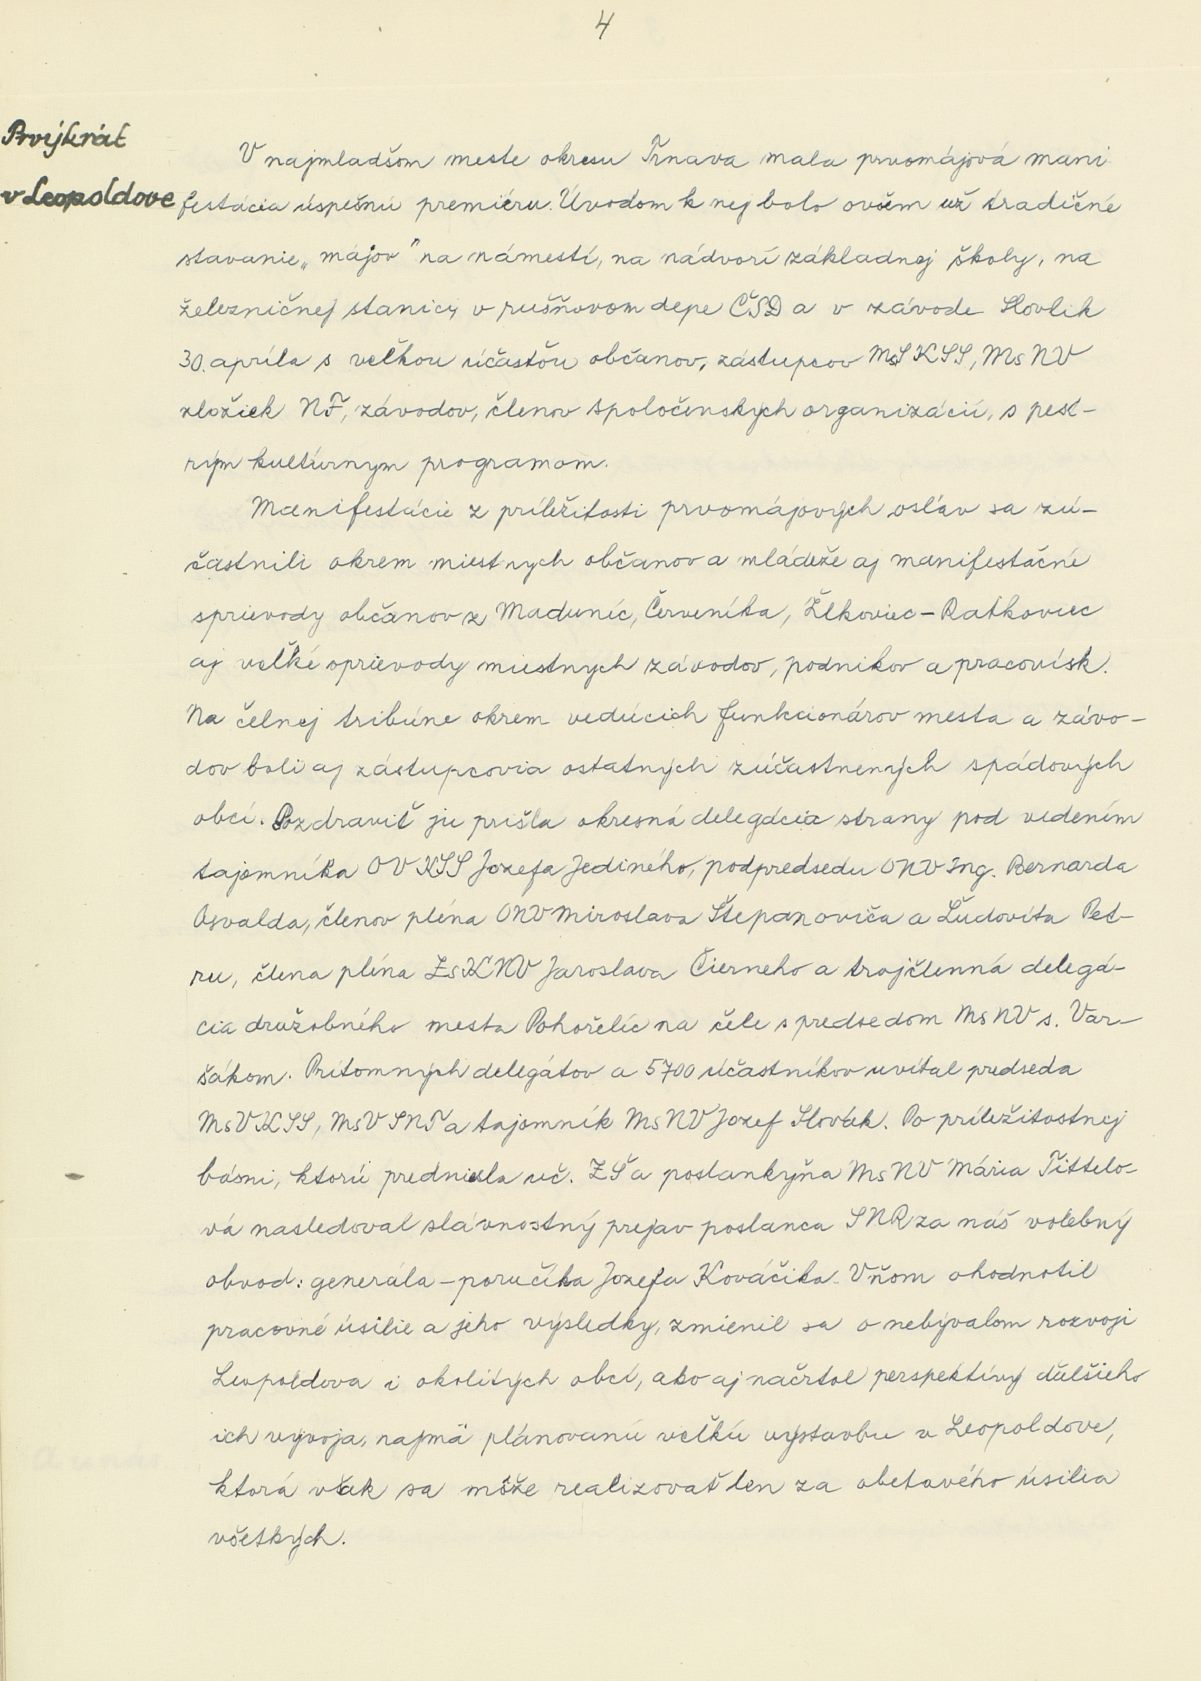 4
Prvýkrát
v Leopoldove
V najmladšom meste okresu Trnava mala prvomájová mani
festácia úspešnú premiéru. Úvodom k nej bolo ovšem už tradičné
stavanie „májov" na námestí, na nádvorí základnej školy, na
železničnej stanici, v rušňovom depe ČSD a v závode Slovlik
30. apríla s veľkou účasťou občanov, zástupcov MsV KSS, MsNV
zložiek NF, závodov, členov spoločenských organizácií, s pest-
rým kultúrnym programom.
Manifestácie z príležitosti prvomájových osláv sa zú-
častnili okrem miestnych občanov a mládeže aj manifestačné
sprievody občanov z Maduníc, Červeníka, Žlkoviec-Ratkoviec
aj veľké sprievody miestnych závodov, podnikov a pracovísk.
Na čelnej tribúne okrem vedúcich funkcionárov mesta a závo-
dov boli aj zástupcovia ostatných zúčastnených spádových
obcí. Pozdraviť ju prišla okresná delegácia strany pod vedením
tajomníka OV KSS Jozefa Jediného, podpredsedu ONV Ing. Bernarda
Osvalda, členov pléna ONV Miroslava Štepanoviča a Ľudovíta Pet-
ru, člena pléna ZsKNV Jaroslava Čierneho a trojčlenná delegá-
cia družobného mesta Pohořelíc na čele s predsedom MsNV s. Var-
šákom. Prítomných delegátov a 5700 účastníkov uvítal predseda
MsV KSS, MsV SNF a tajomník MsNV Jozef Slovák. Po príležitostnej
básni, ktorú predniesla uč. ZŠ a poslankyňa MsNV Mária Tittelo-
vá nasledoval slávnostný prejav poslanca SNR za náš volebný
obvod: generála-poručíka Jozefa Kováčika. V ňom ohodnotil
pracovné úsilie a jeho výsledky, zmienil sa o nebývalom rozvoji
Leopoldova i okolitých obcí, ako aj načrtol perspektívy ďalšieho
ich vývoja, najmä plánovanú veľkú výstavbu v Leopoldove,
ktorá však sa môže realizovať len za obetavého úsilia
všetkých.